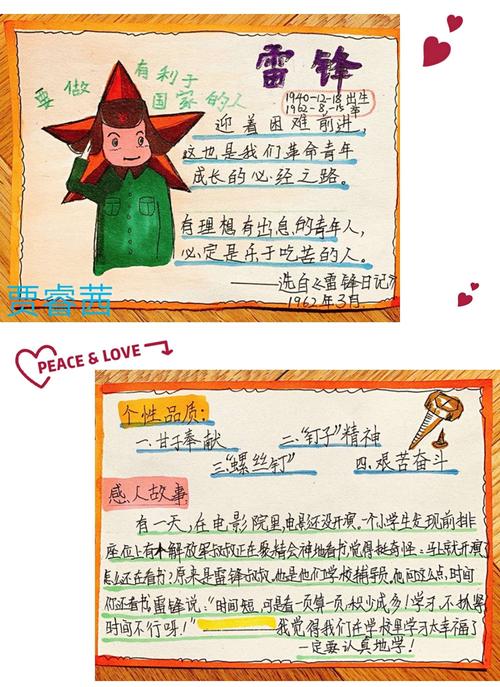 雷锋
要做
有利于
国家的人
1940-12-18出生
1962-8-15卒
迎着困难前进,
这也是我们革命青年
成长的必经之路。
有理想有出息的青年人,
必定是乐于吃苦的人。
——选自《雷锋日记》
1962年3月.
贾睿茜
PEACE & LOVE
个性品质:
一.甘于奉献 二."钉子"精神
三."螺丝钉" 四.艰苦奋斗
感人故事
有一天,在电影院里,电影还没开演。一个小学生发现前排
座位上有个解放军叔叔正在聚精会神地看书,觉得挺奇怪:马上就开演了
怎么还在看书?原来是雷锋叔叔,他是他们学校辅导员,他问这么点,时间
何还看书,雷锋说:"时间短,可是看一页算一页,积少成多!学习,不抓紧
时间不行呀!" 我觉得我们在学校里学习太幸福了
一定要认真地学!